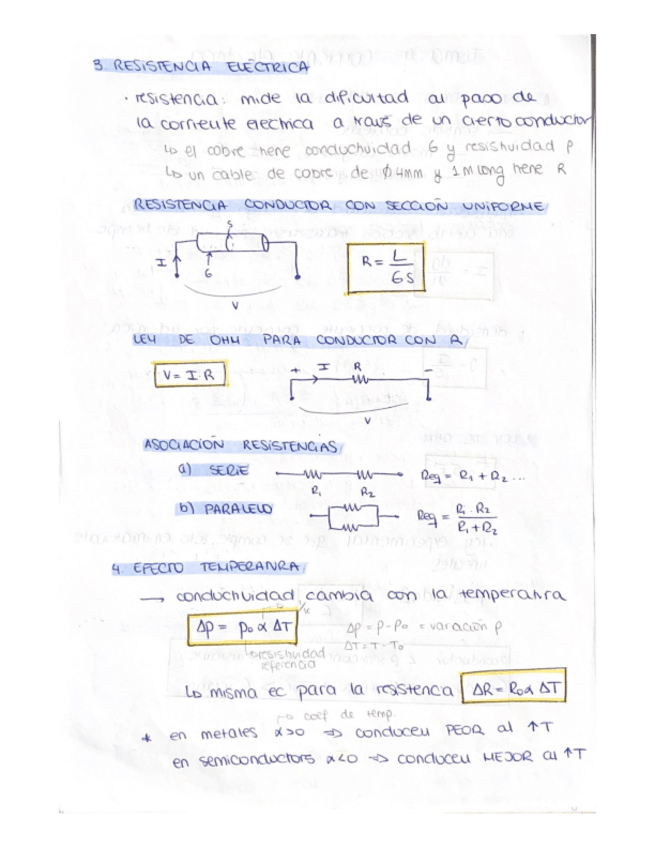 3. RESISTENCIA ELÉCTRICA
· resistencia: mide la dificultad al paso de
la corriente electrica a través de un cierto conductor
↳ el cobre tiene conductividad σ y resistividad ρ
↳ un cable de cobre de ∅4mm y 1m long tiene R
RESISTENCIA CONDUCTOR CON SECCIÓN UNIFORME
S
I σ
V
R = L / σS
LEY DE OHM PARA CONDUCTOR CON R
V = I·R
+ I R -
V
ASOCIACIÓN RESISTENCIAS
a) SERIE
R1 R2
Req = R1 + R2 ...
b) PARALELO
Req = R1 · R2 / R1 + R2
4. EFECTO TEMPERATURA
→ conductividad cambia con la temperatura
Δρ = ρ0 α ΔT
Δρ = ρ - ρ0 = variación ρ
ΔT = T - T0
resistividad
referencia
↳ misma ec para la resistencia ΔR = R0 α ΔT
→ coef de temp.
* en metales α>0 ⇒ conducen PEOR al ↑T
en semiconductors α<0 ⇒ conducen MEJOR al ↑T